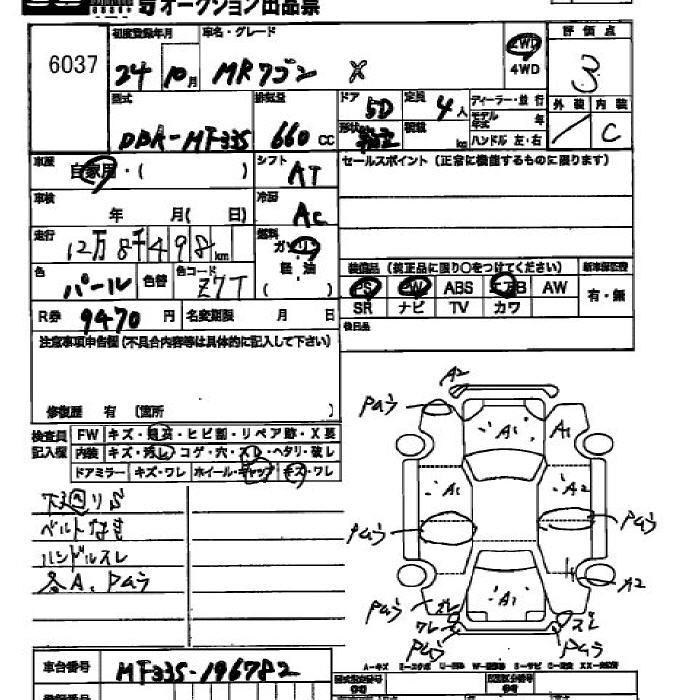 オークション出品票
6037
初度登録年月 車名・グレード 評価点
24年10月 MRワゴン X 2WD 4WD 3
型式 排気量 ドア 定員 ディーラー・並行 外装 内装
DBA-MF33S 660cc 5D 4人 モデル年式 年 C
形状 積載 kg ハンドル 左・右
車歴 自家用・( ) シフト AT セールスポイント (正常に機能するものに限ります)
車検 年 月( 日) 冷房 AC
走行 12万8千498km 燃料 ガソリン 軽油 ( )
色 パール 色替 色コード Z7T
装備品 (純正品に限り○をつけてください) 新車保証書
PS PW ABS エアB AW 有・無
SR ナビ TV カワ
R券 9470円 名変期限 月 日 後日品
注意事項申告欄 (不具合内容等は具体的に記入して下さい)
修復歴 有 (箇所 )
検査員記入欄 FW キズ・飛石・ヒビ割・リペア跡・X要
内装 キズ・汚レ・コゲ・穴・スレ・ヘタリ・破レ
ドアミラー キズ・ワレ ホイール・キャップ キズ・ワレ
下廻りS
ベルトなき
ハンドルスレ
各A、Pムラ
A2
Pムラ
A1 A1
A1 A2
Pムラ Pムラ
A2
A1
Pムラ スレ ワレ スレ
Pムラ Pムラ
A-キズ
車台番号 MF33S-196782